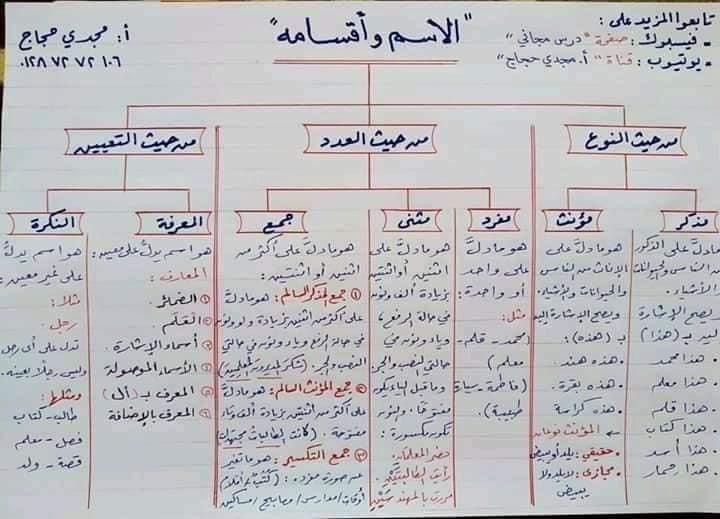 تابعوا المزيد على :
- فيسبوك : صفحة " درس مجاني "
- يوتيوب : قناة " أ. مجدي حجاج "
"الاسم وأقسامه"
أ: مجدي حجاج
٠١٢٨ ٧٢ ٧٢ ١٠٦
من حيث النوع
من حيث العدد
من حيث التعيين
مذكر
مادلَّ على الذكور
من الناس وحيوانات
الأشياء.
يصح الإشارة
ليه بـ (هذا)
• هذا محمد
• هذا معلم
• هذا قلم
• هذا كتاب
• هذا أسد
• هذا حمار
مؤنث
هو مادلَّ على
الإناث من الناس
والحيوانات والأشياء.
ويصح الإشارة إليه
بـ (هذه):
• هذه هند.
• هذه بقرة.
• هذه كراسة
المؤنث نوعان
• حقيقي: يلد أو يبيض
• مجازى: لا يلد ولا
يبيض
مفرد
هو مادلَّ
على واحد
أو واحدة:
مثل:
(محمد - قلم -
معلم)
(فاطمة - سيارة
طبيبة).
مثنى
هو مادلَّ على
اثنين أو اثنتين
بزيادة ألف ونون
في حالة الرفع،
حالتي النصب والجر
وما قبل الياء يكون
مفتوحًا، والنون
تكون مكسورة:
حضر المعلمان.
رأيت الطالبتَيْنِ.
مررت بالمهندسَيْنِ
جمع
هو مادلَّ على أكثر من
اثنين أو اثنتين:
① جمع المذكر السالم: هو مادلَّ
على أكثر من اثنين بزيادة واو ونون
في حالة الرفع وياء ونون في حالتي
النصب والجر. (شكر المديرون المعلمين)
② جمع المؤنث السالم: هو مادلَّ
على أكثر من اثنتين بزيادة ألف وتاء
مفتوحة. (كانت الطالبات مجتهدات)
③ جمع التكسير: هو ما تغير
عن صورة مفرده: (كُتُب / أقلام)
أوقات / مدارس / مصابيح / مساكين
المعرفة
هو اسم يدلُّ على معين:
المعارف:
① الضمائر.
② العَلَم.
③ أسماء الإشارة.
④ الأسماء الموصولة
⑤ المعرف بـ (أل)
⑥ المعرف بالإضافة
النكرة
هو اسم يدلُّ
على غير معين:
مثلا:
رجل:
تدل على أى رجل
وليس رجلًا بعينه.
ومثلها:
طالب - كتاب
فصل - معلم
قصة - ولد